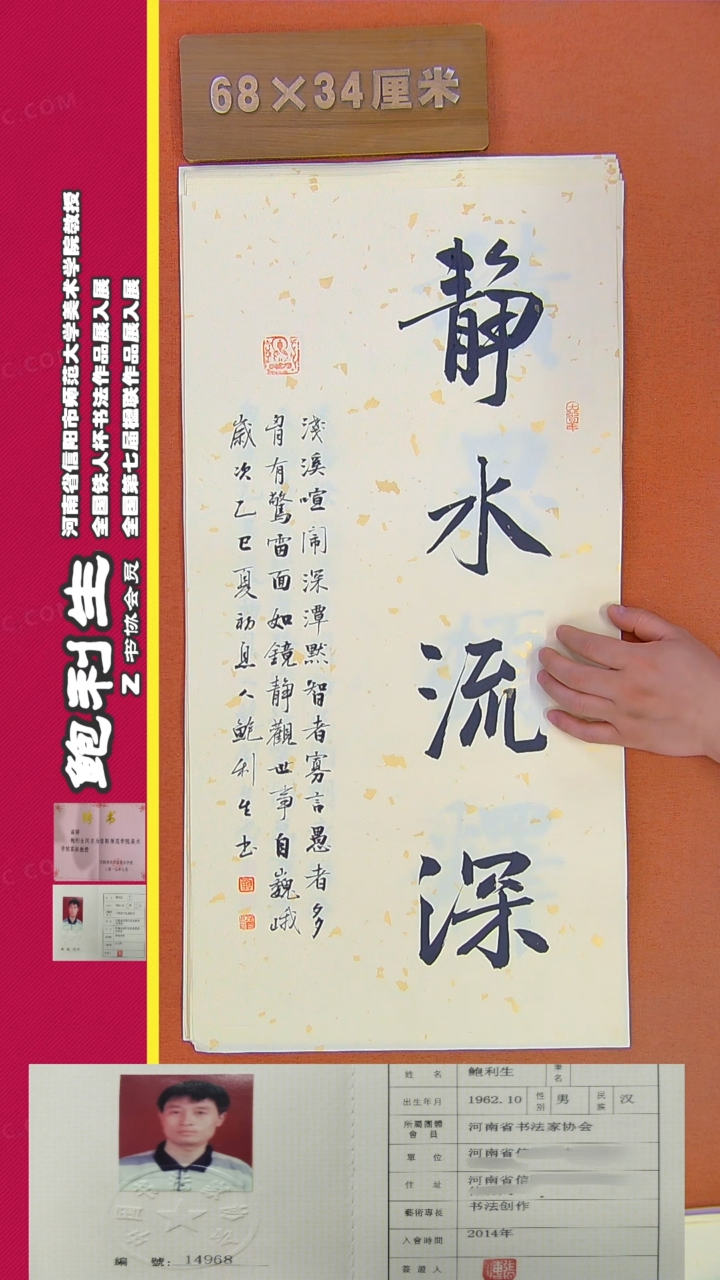 68×34厘米
靜水流深
淺溪喧闹深潭默智者寡言愚者多
胷有驚雷面如鏡静觀世事自巍峨
歲次乙巳夏初息人鲍利生书
河南省信阳市师范大学美术学院教授
全国铁人杯书法作品展入展
全国第七届楹联作品展入展
鲍利生
Z 书协会员
聘书
姓 名 鲍利生 筆名
出生年月 1962.10 性別 男 民族 汉
所屬團體會員 河南省书法家协会
單 位 河南省信
住 址 河南省信
藝術專長 书法创作
入會時間 2014年
簽證人
編 號: 14968